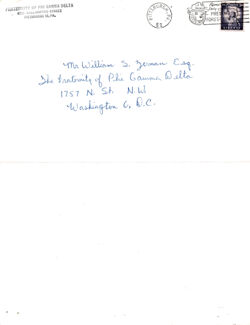 FRATERNITY OF PHI GAMMA DELTA
PITTSBURGH, PA.
LIBERTY
Mr William S. Zerman Esq.
The Fraternity of Phi Gamma Delta
1757 N. St. N.W
Washington 6, D.C.